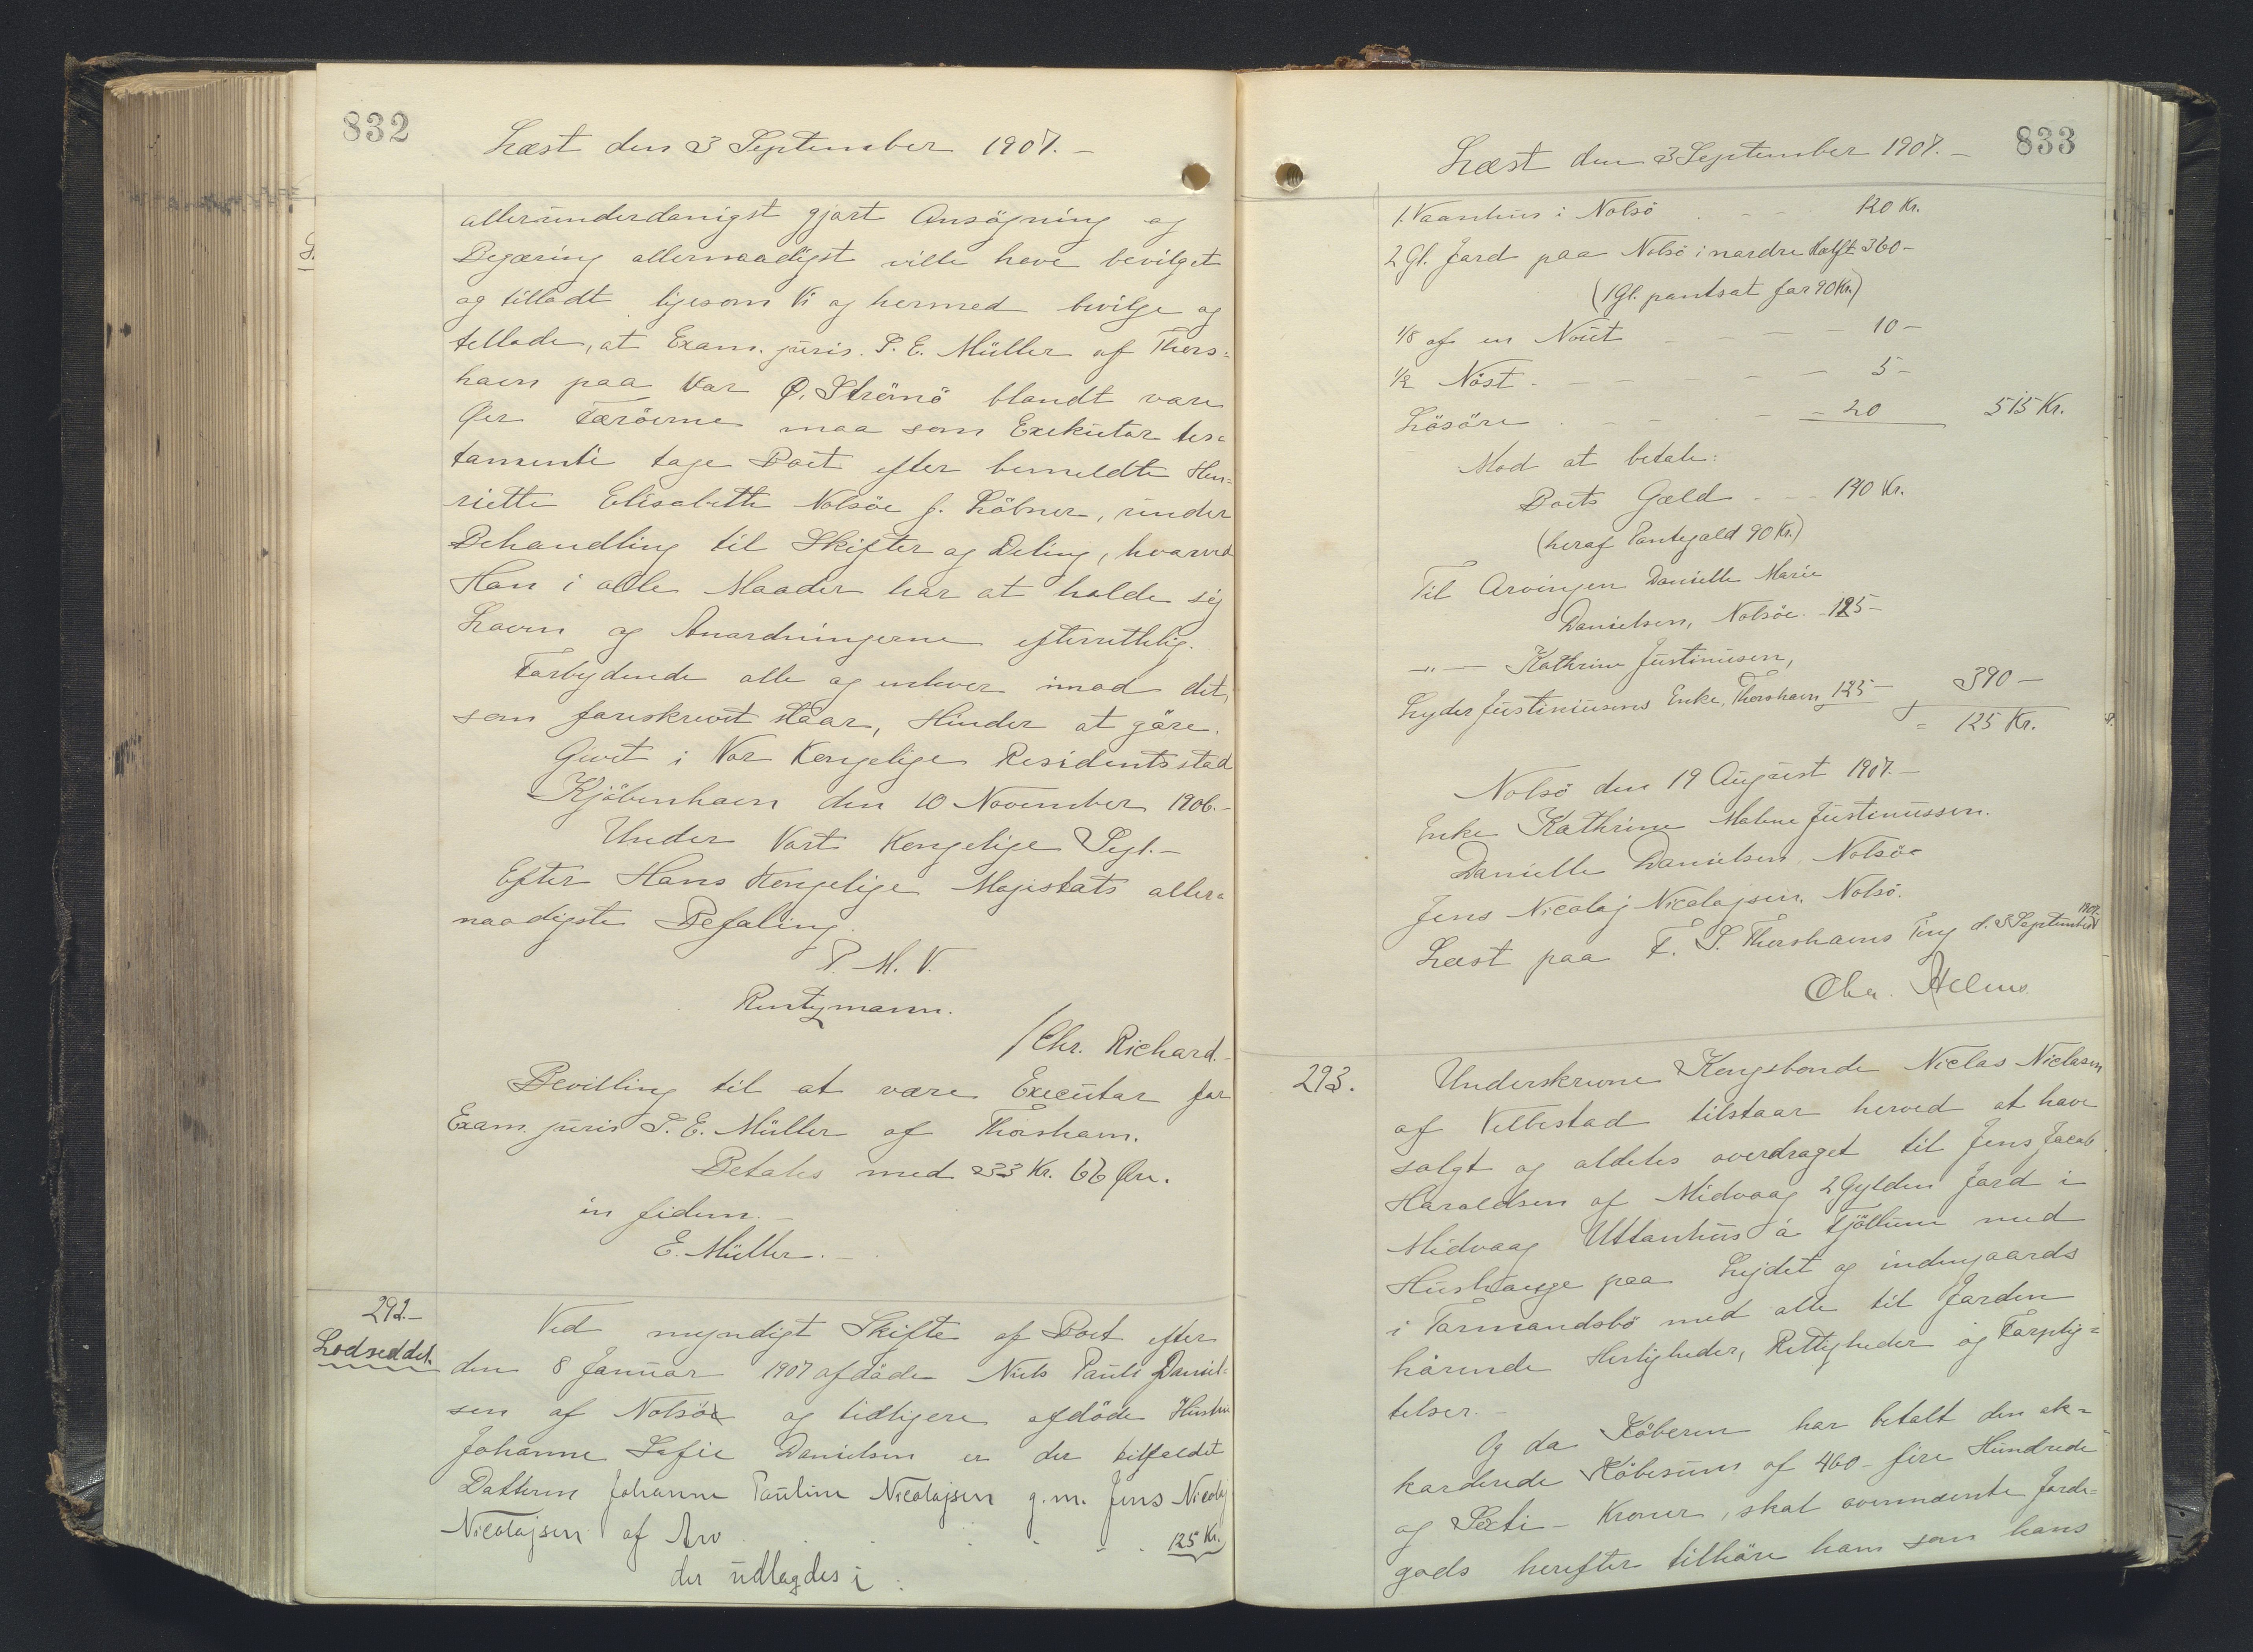 832
Læst den 3 September 1907.-
allerunderdanigst gjort Ansögning og
Begæring allernaadigst ville have bevilget
og tilladt ligesom Vi og hermed bevilge og
tillade, at Exam. juris. P. E. Müller af Thors=
havn paa Vor Ø. Strömö blandt vore
Øer Færöerne maa som Exekutor tes=
tamenti tage Boet efter bemeldte Hen=
riette Elisabeth Nolsöe f. Löbner, under
Behandling til Skifter og Deling, hvorved
Han i alle Maader har at holde sig
Loven og Anordningerne efterrettelig.
Forbydende alle og enhver imod det,
som foreskrevet staar, Hinder at göre.
Givet i Vor Kongelige Residentsstad
Kjöbenhavn den 10 November 1906.-
Under Vort Kongelige Segl.-
Efter Hans Kongelige Majestæts aller=
naadigste Befaling.
P. M. V.
Rentzmann.
/Chr. Richard.-
Bevilling til at være Executor for
Exam. juris P. E. Müller af Thorshavn.
Betales med 233 Kr. 66 Øre.
in fidem.-
E. Müller.-
292.-
Lodseddel.
Ved myndigt Skifte af Boet efter
den 8 Januar 1907 afdöde Niels Pauli Daniel=
sen af Nolsöe og tidligere afdöde Hustru
Johanne Sofie Danielsen er der tilfaldet
Datteren Johanne Pauline Nicolajsen g.m. Jens Nicolaj
Nicolajsen af Arv . . . . 125 Kr.
der udlagdes i :
833
Læst den 3 September 1907.-
1. Vaanhus i Nolsö . - - 120 Kr.
2 Gl. Jord paa Nolsö i nordre Halft 360-
(1 Gl. pantsat for 90 Kr.)
1/8 af en Nout - - - - 10-
1/2 Nöst. - - - - - 5-
Lösöre . - - - - 20 515 Kr.
Mod at betale:
Boets Gæld - - - 140 Kr.
(heraf Pantegæld 90 Kr.)
Til Arvingen Danielle Marie
Danielsen, Nolsöe. - 125-
-"- Kathrine Justinusen,
Lyder Justinusens Enke, Thorshavn 125- 390-
= 125 Kr.
Nolsö den 19 August 1907.-
Enke Kathrine Malene Justinussen.
Danielle Danielsen, Nolsöe
Jens Nicolaj Nicolajsen, Nolsö.
Læst paa F. S. Thorshavns Ting d. 3 September 1907.
Chr. Helms
293.
Underskrevne Kongsbonde Niclas Niclasen
af Velbestad tilstaar herved at have
solgt og aldeles overdraget til Jens Jacob
Haraldsen af Midvaag 2 Gylden Jord i
Midvaag Uttanhus á Fjöllum med
Hushauge paa Lejdet og indengaards
i Tormandsbö med alle til Jorden
hörende Herligheder, Rettigheder og Forplig=
telser.-
Og da Köberen har betalt den ak=
korderede Köbesum af 460- fire Hundrede
og Seksti- Kroner, skal ovennævnte Jorde=
gods herefter tilhöre ham som hans